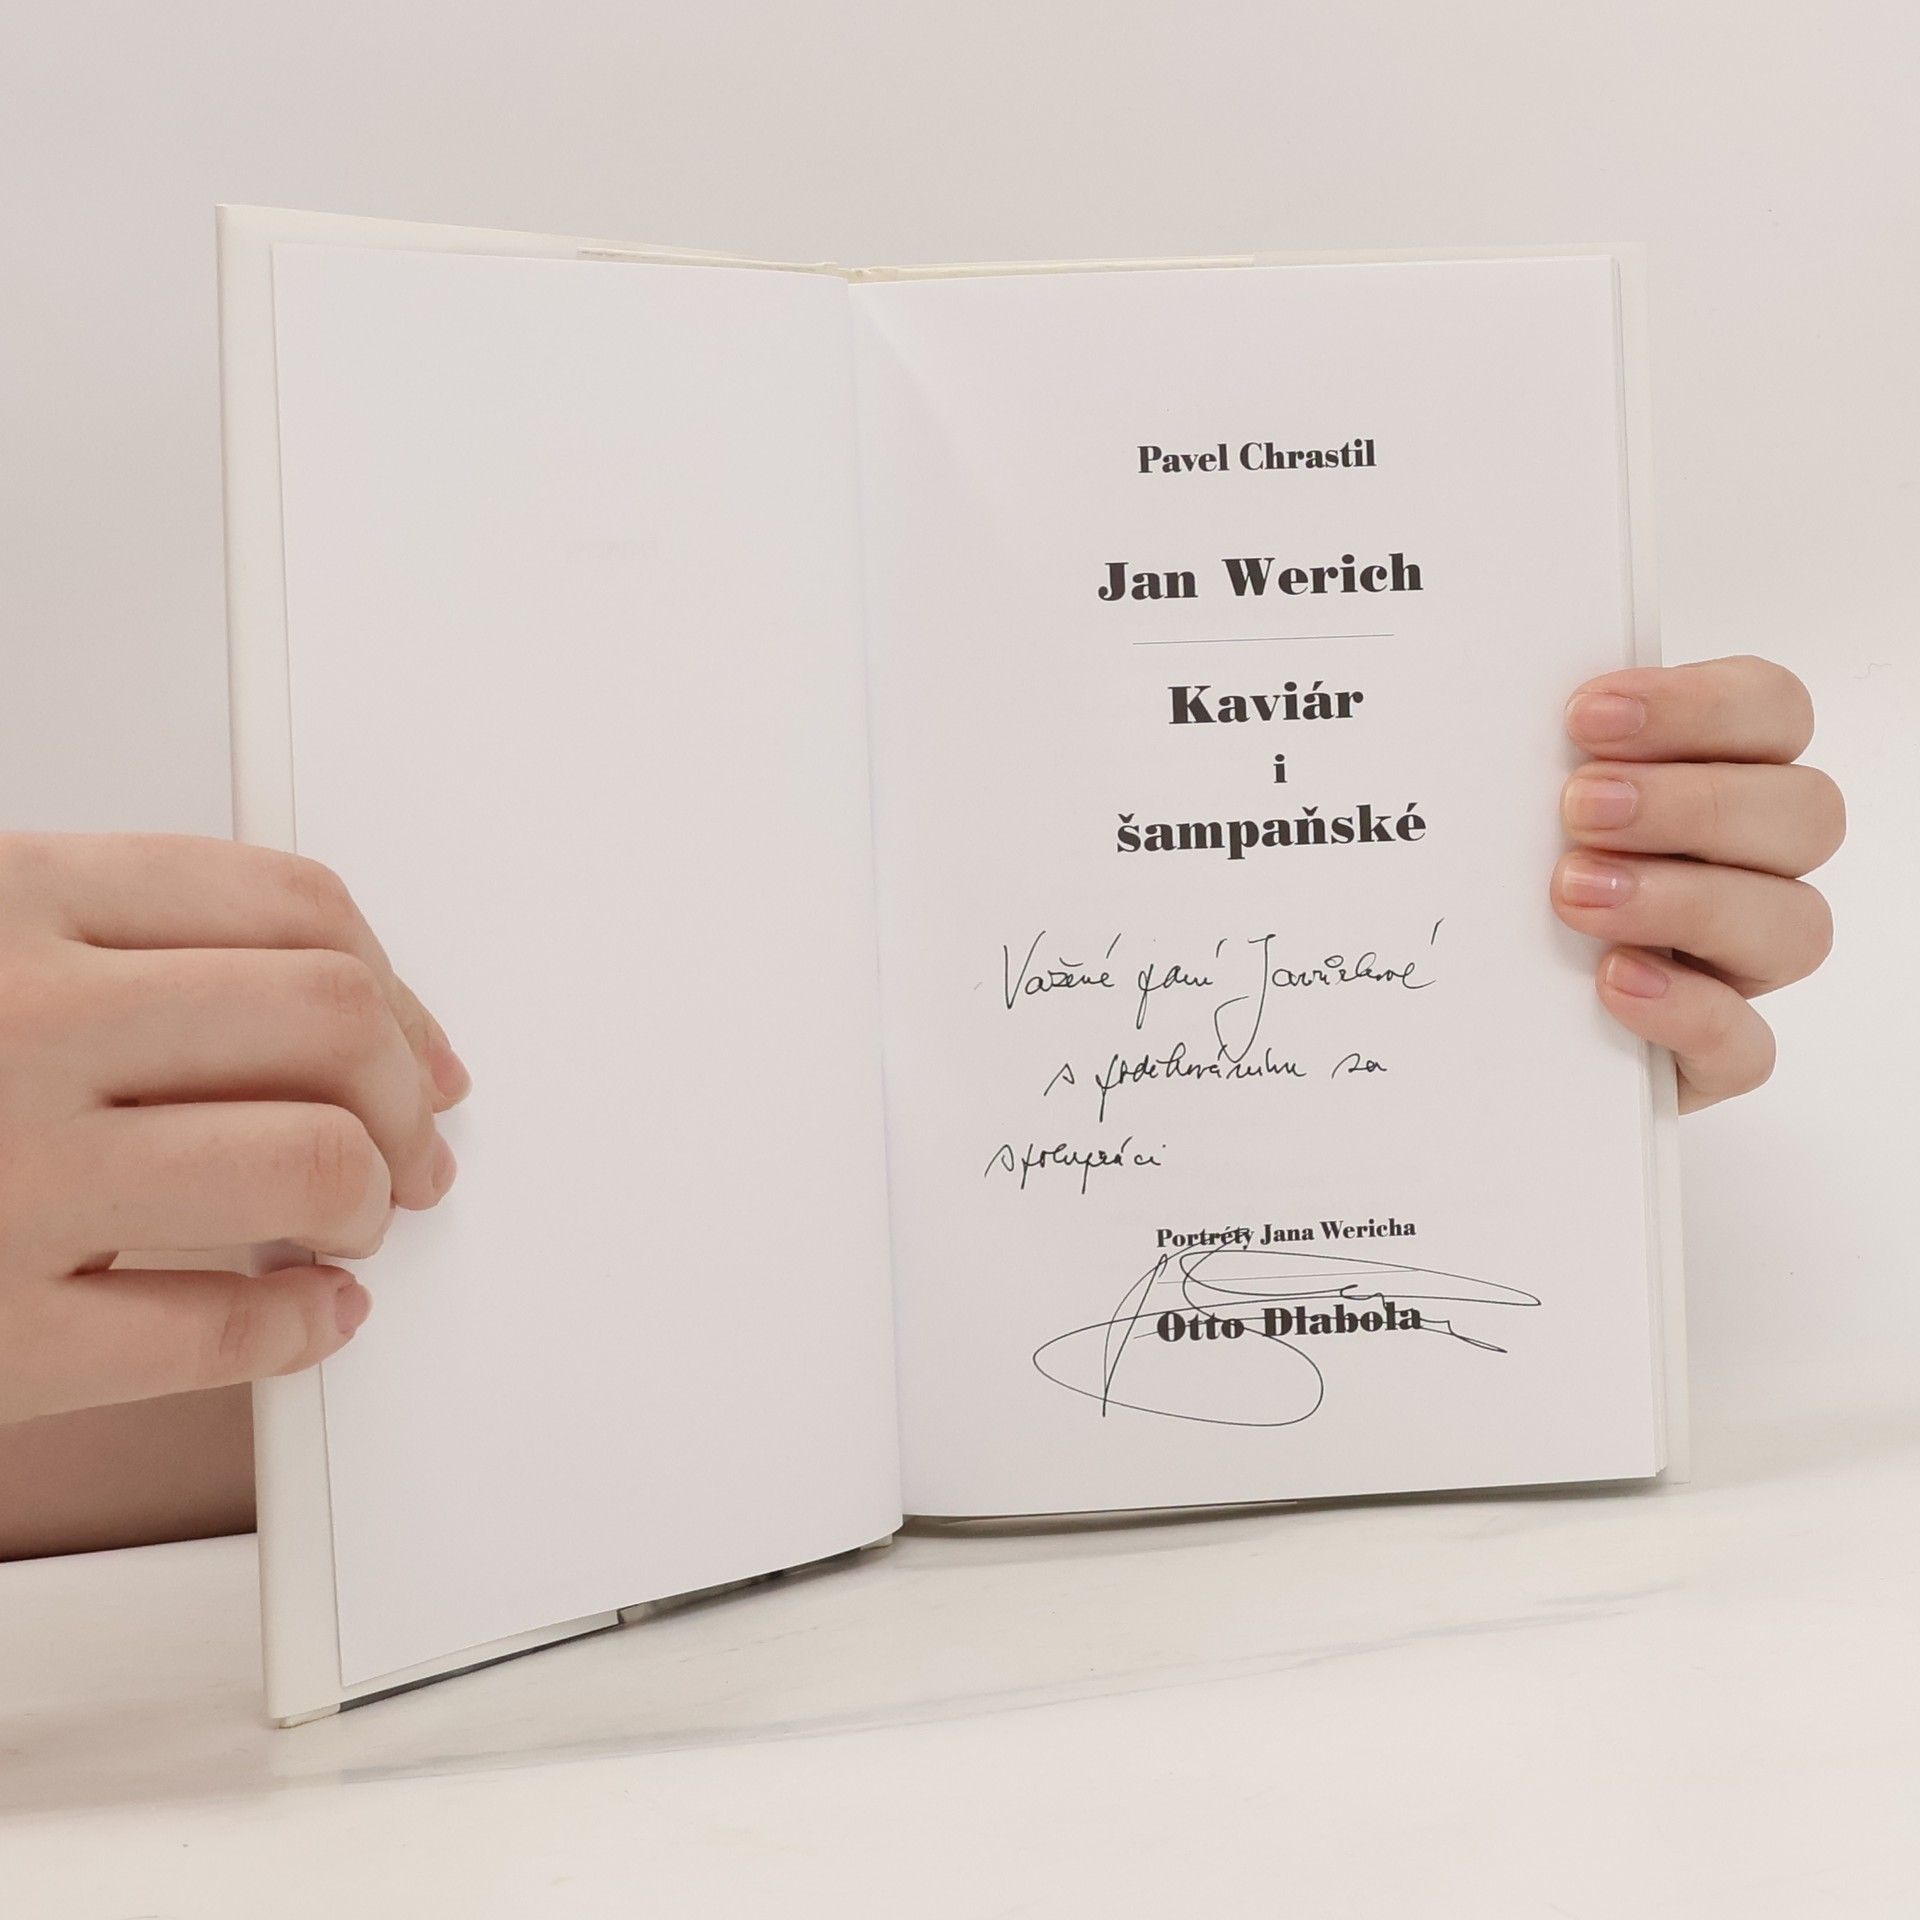 Pavel Chrastil
Jan Werich
Kaviár
i
šampaňské
Vážené paní
s poděkováním za
spolupráci
Portréty Jana Wericha
Otto Dlabola